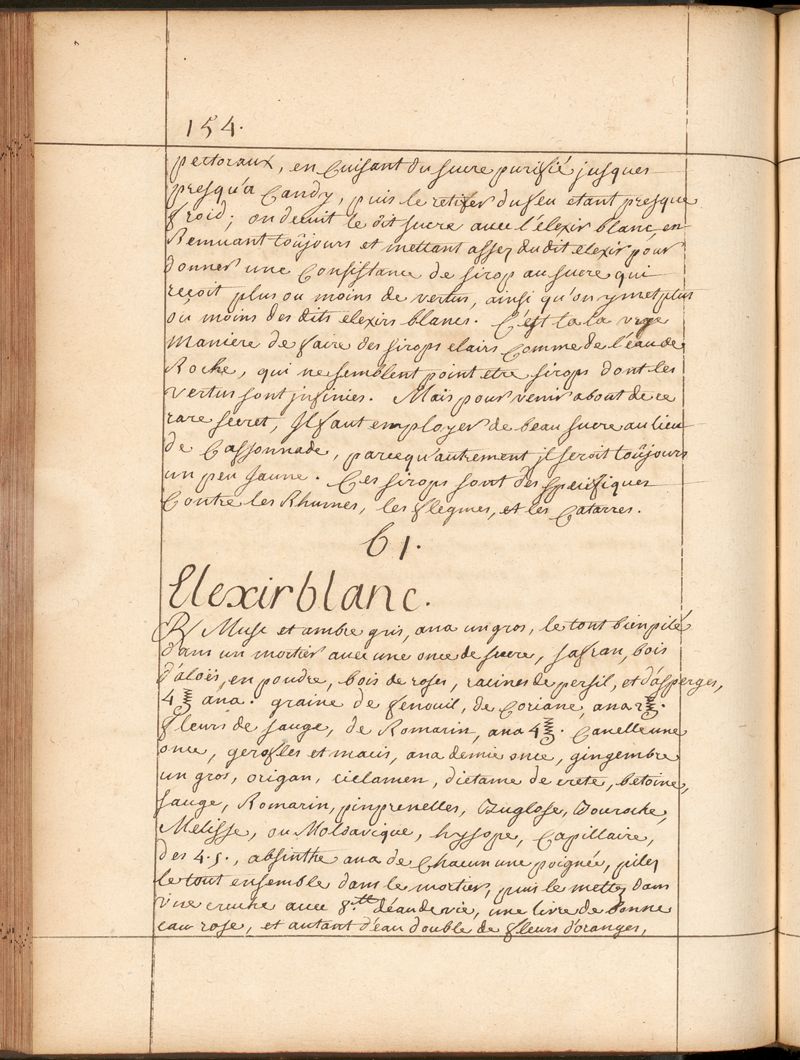 154.
pectoraux, en Cuisant du sucre purifié jusques
presqu'a Candy, puis le retirer du feu etant presque
froid; on decuit le dit sucre avec l'elexir blanc, en
Remuant toûjours et mettant assez du dit elexir pour
donner une Consistance de sirop au sucre qui
reçoit plus ou moins de vertus, ainsi qu'on y met plus
ou moins des dits elexirs blancs. C'est la la vraye
Maniere de faire des sirops clairs Comme de l'eau de
Roche, qui ne semblent point etre sirops dont les
vertus sont infinies. Mais pour venir about de ce
rare secret, Il faut employer de beau sucre au lieu
de Cassonnade, parcequ'autrement il seroit toûjours
un peu Jaune. Ces sirops sont des specifiques
Contre les Rhumes, les flegmes, et les Catarres.
61.
Elexir blanc.
℞ Musc et ambre gris, ana un gros, le tout bien pilé
dans un mortier avec une once de sucre, safran, bois
d'aloës, en poudre, bois de roses, racines de persil, et d'asperges,
4℥ ana. graine de fenouil, de Coriane, ana 2℥.
fleurs de sauge, de Romarin, ana 4℥. Canelle une
once, gerofles et macis, ana demie once, gingembre
un gros, origan, ciclamen, dictame de crete, betoine,
sauge, Romarin, pinprenelles, Buglose, Bouroche,
Melisse, ou Moldavique, hysope, Capillaire,
des 4.s., absinthe ana de Chacun une poignée, pilez
le tout ensemble dans le mortier, puis le mettez dans
vne cruche avec 8.tt d'eau de vie, une livre de bonne
eau rose, et autant d'eau double de fleurs d'oranges,